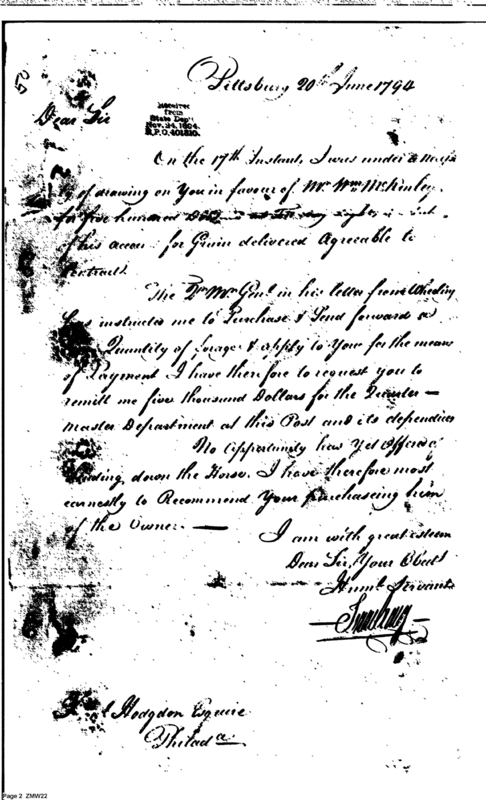 Pittsburg 20th June 1794
Dear Sir
Received
from
State Dept
Nov. 24, 1904.
R.P.O. 401820.
On the 17th Instant, I was under a
of drawing on You in favour of Mr Wm McKinley
for five hundred
of his for Grain delivered Agreeable to
Contract.
The Qr. Mr. Genl. in his letter from Wheeling
has instructed me to Purchase & Send forward a
Quantity of forage & apply to You for the means
of Payment I have therefore to request you to
remitt me five thousand Dollars for the Quarter —
Master Department at this Post and its dependcies
No Opportunity has Yet Offered
Sending down the Horse. I have therefore most
earnestly to Recommend Your purchaseing him
of the Owner. —
I am with great esteem
Dear Sir, Your Obedt
Humbl Servant
Hodgdon Esquire
Philada
Page 2 ZMW22